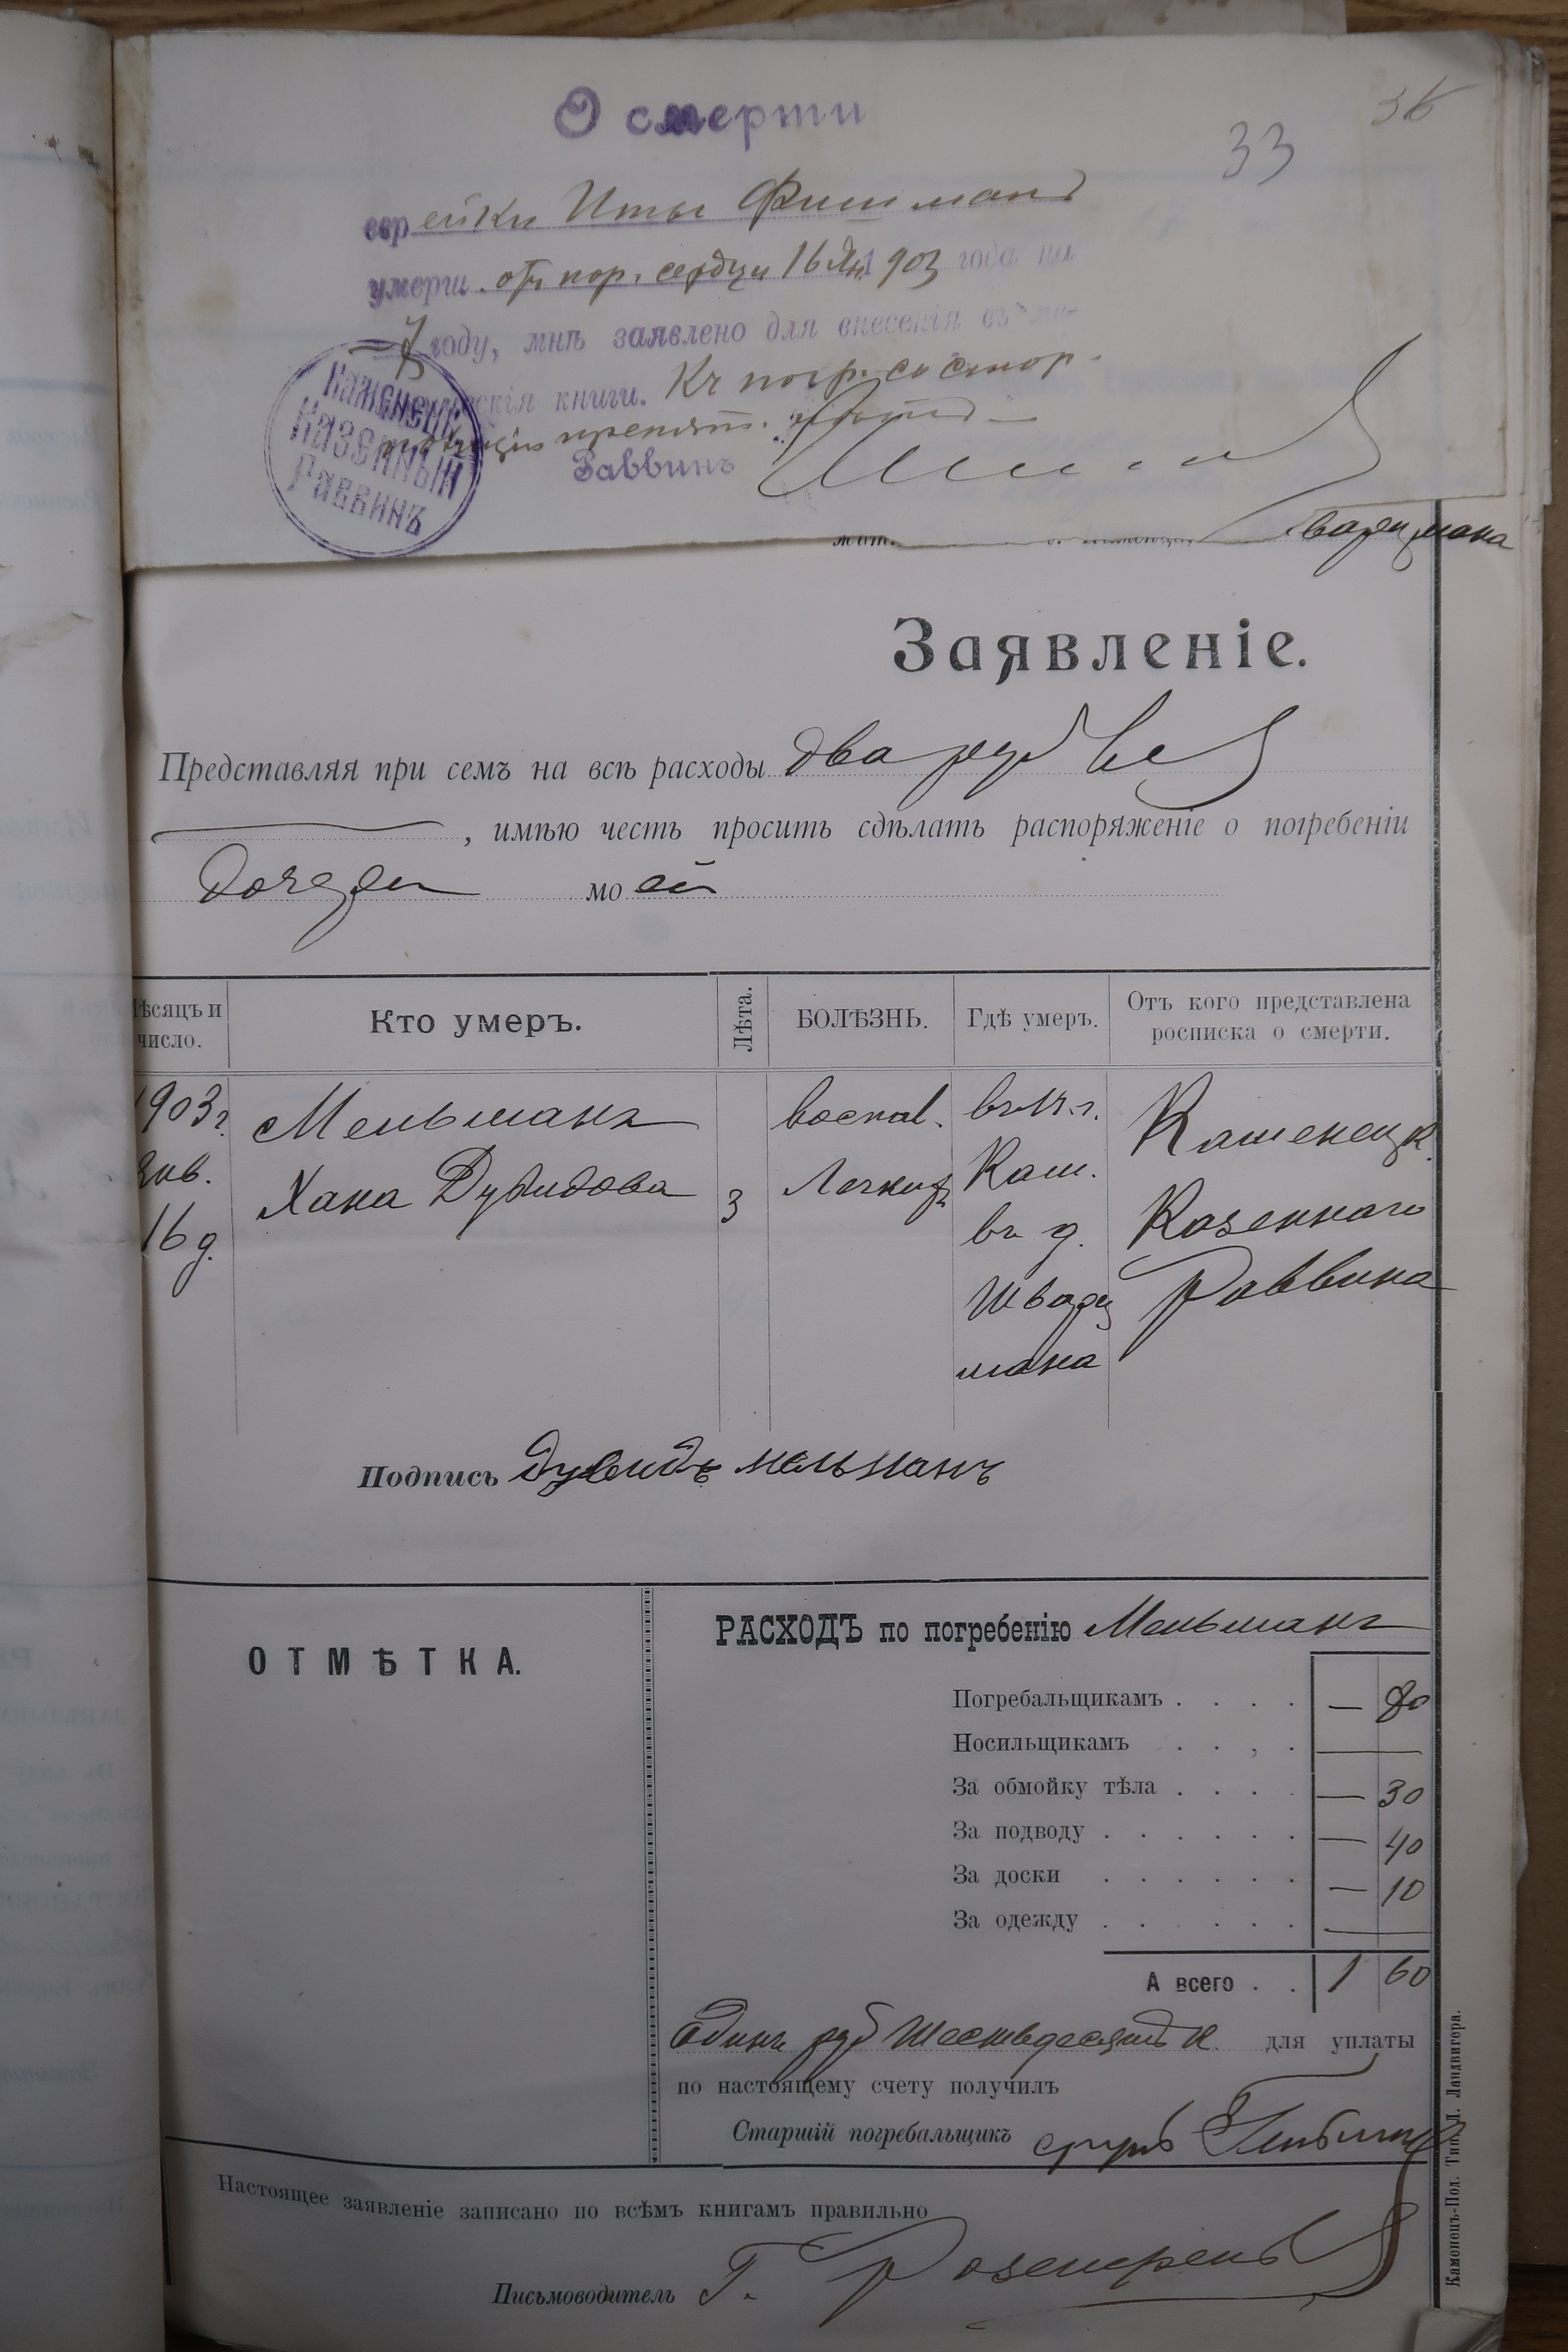 О смерти
36
33
еврейки Иты Фишманъ
умерш. отъ пор. сердца 16 Янв. 1903 года на
году, мнѣ заявлено для внесенія въ ме-
скія книги. Къ погр. со стор.
препят.
Раввинъ
Каменецк.
Казенный
Раввинъ
Шварцмана
Заявленіе.
Представляя при семъ на всѣ расходы два руб
, имѣю честь просить сдѣлать распоряженіе о погребеніи
дочери моей
Мѣсяцъ и число. Кто умеръ. Лѣта. БОЛѢЗНЬ. Гдѣ умеръ. Отъ кого представлена росписка о смерти.
1903 г. Мельманъ воспал. въ Каменецк.
Янв. Хана Дувидова 3 Легкихъ Кам. Казеннаго
16 д. въ д. Раввина
Шварц
мана
Подпись Дувидъ Мельманъ
ОТМѢТКА.
РАСХОДЪ по погребенію Мельманъ
Погребальщикамъ . . . . — 80
Носильщикамъ . . , . —
За обмойку тѣла . . . . — 30
За подводу . . . . . . — 40
За доски . . . . . . — 10
За одежду . . . . . . —
А всего . . 1 60
Одинъ руб Шестьдесятъ к. для уплаты
по настоящему счету получилъ
Старшій погребальщикъ
Настоящее заявленіе записано по всѣмъ книгамъ правильно
Письмоводитель Г.
Каменецъ-Под. Тип. Л. Ландвигера.